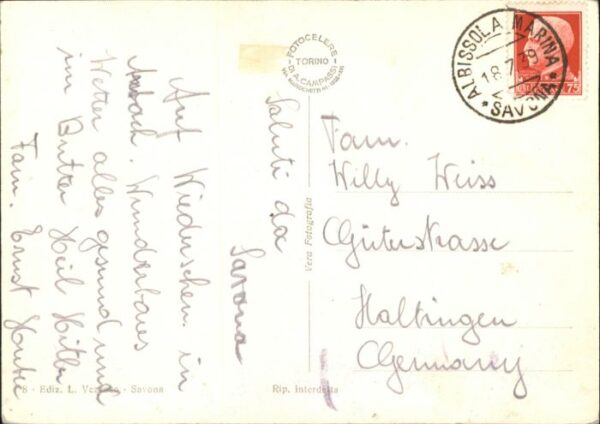 Auf Wiedersehen in
Wunderbares
Wetter alles gesund und
im Butter Heil Hitler
Fam. Ernst
Saluti da
Savona
FOTOCELERE
TORINO
DI A. CAMPASSI
Vera Fotografia
ALBISSOLA MARINA
18.7.39
* SAVONA *
75
Fam.
Willy Weiss
Güterstrasse
Haltingen
Germany
8 - Ediz. L. - Savona
Rip. interdetta